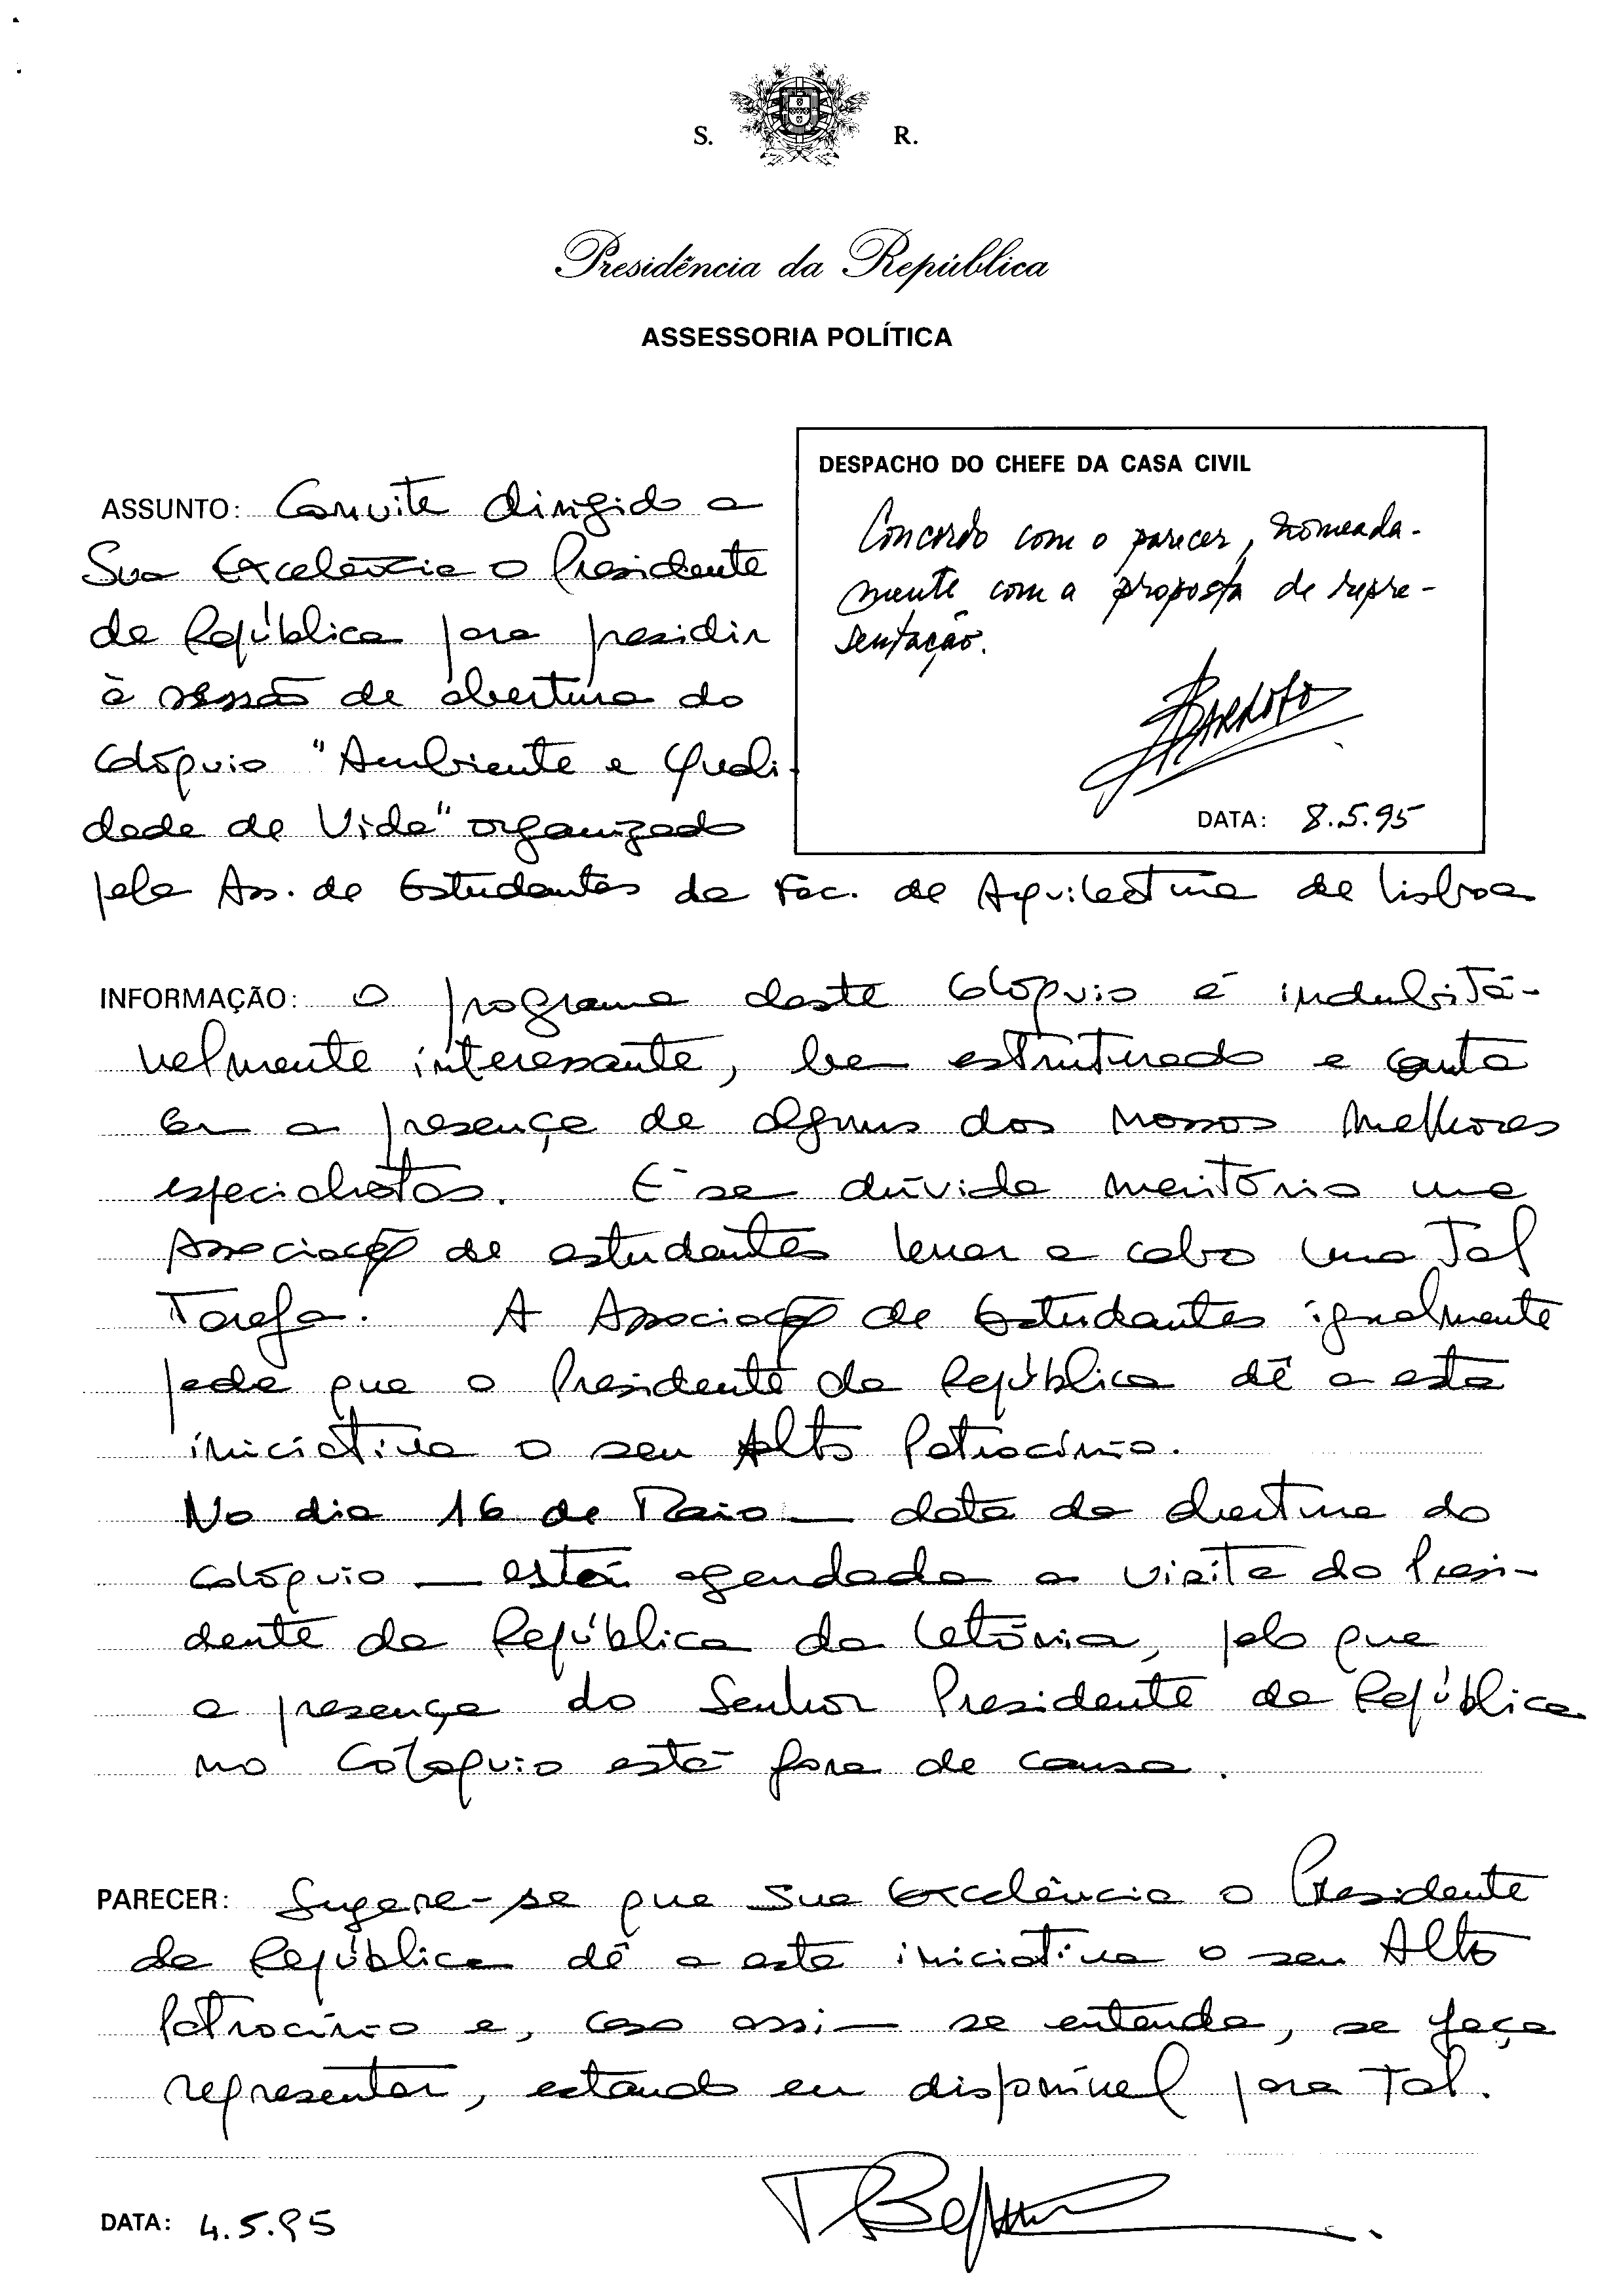 S. R.
Presidência da República
ASSESSORIA POLÍTICA
ASSUNTO: Convite dirigido a
Sua Excelência o Presidente
da República para presidir
à sessão de abertura do
Colóquio "Ambiente e Quali-
dade de Vida" organizado
pela Ass. de Estudantes da Fac. de Arquitectura de Lisboa
DESPACHO DO CHEFE DA CASA CIVIL
Concordo com o parecer, nomeada-
mente com a proposta de repre-
sentação.
DATA: 8.5.95
INFORMAÇÃO: O programa deste Colóquio é indubitá-
velmente interessante, bem estruturado e conta
com a presença de alguns dos nossos melhores
especialistas. É sem dúvida meritório uma
Associação de estudantes levar a cabo uma tal
Tarefa. A Associação de Estudantes igualmente
pede que o Presidente da República dê a esta
iniciativa o seu Alto Patrocínio.
No dia 16 de Maio — data da abertura do
Colóquio — está agendada a visita do Presi-
dente da República da Letónia, pelo que
a presença do Senhor Presidente da República
no Colóquio está fora de causa.
PARECER: Sugere-se que Sua Excelência o Presidente
da República dê a esta iniciativa o seu Alto
Patrocínio e, caso assim se entenda, se faça
representar, estando eu disponível para tal.
DATA: 4.5.95